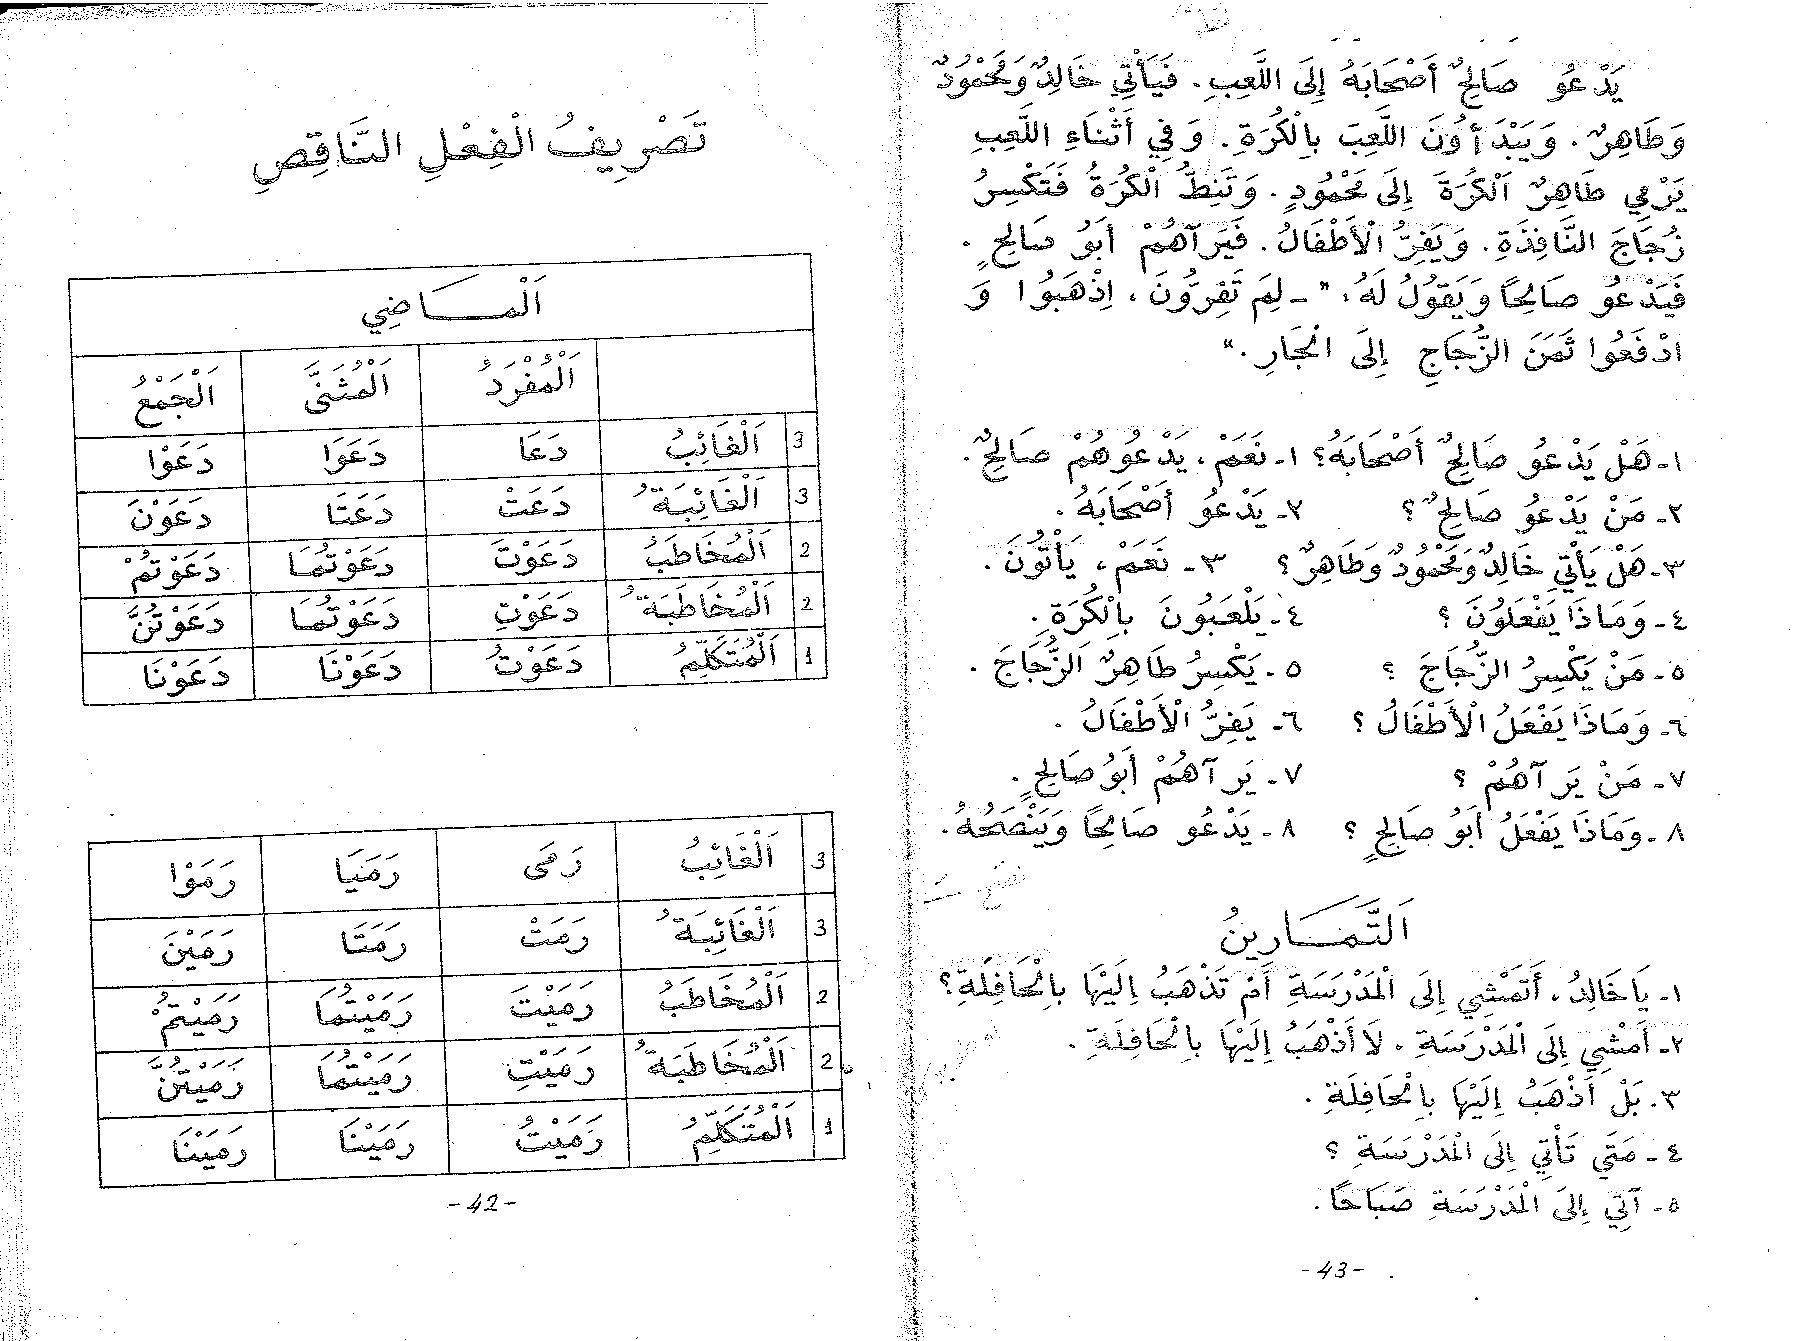 تَصْرِيفُ الْفِعْلِ النَّاقِصِ
اَلْمَاضِي
اَلْمُفْرَدُ اَلْمُثَنَّى اَلْجَمْعُ
3 اَلْغَائِبُ دَعَا دَعَوَا دَعَوْا
3 اَلْغَائِبَةُ دَعَتْ دَعَتَا دَعَوْنَ
2 اَلْمُخَاطَبُ دَعَوْتَ دَعَوْتُمَا دَعَوْتُمْ
2 اَلْمُخَاطَبَةُ دَعَوْتِ دَعَوْتُمَا دَعَوْتُنَّ
1 اَلْمُتَكَلِّمُ دَعَوْتُ دَعَوْنَا دَعَوْنَا
3 اَلْغَائِبُ رَمَى رَمَيَا رَمَوْا
3 اَلْغَائِبَةُ رَمَتْ رَمَتَا رَمَيْنَ
2 اَلْمُخَاطَبُ رَمَيْتَ رَمَيْتُمَا رَمَيْتُمْ
2 اَلْمُخَاطَبَةُ رَمَيْتِ رَمَيْتُمَا رَمَيْتُنَّ
1 اَلْمُتَكَلِّمُ رَمَيْتُ رَمَيْنَا رَمَيْنَا
-42-
يَدْعُو صَالِحٌ أَصْحَابَهُ إِلَى اللَّعِبِ. فَيَأْتِي خَالِدٌ وَمَحْمُودٌ
وَطَاهِرٌ. وَيَبْدَأُونَ اللَّعِبَ بِالْكُرَةِ. وَفِي أَثْنَاءِ اللَّعِبِ
يَرْمِي طَاهِرٌ اَلْكُرَةَ إِلَى مَحْمُودٍ. وَتَنِطُّ الْكُرَةُ فَتَكْسِرُ
زُجَاجَ النَّافِذَةِ. وَيَفِرُّ الْأَطْفَالُ. فَيَرَآهُمْ أَبُو صَالِحٍ.
فَيَدْعُو صَالِحًا وَيَقُولُ لَهُ، "- لِمَ تَفِرُّونَ، اِذْهَبُوا وَ
ادْفَعُوا ثَمَنَ الزُّجَاجِ إِلَى الْجَارِ."
١- هَلْ يَدْعُو صَالِحٌ أَصْحَابَهُ؟ ١- نَعَمْ، يَدْعُوهُمْ صَالِحٌ.
٢- مَنْ يَدْعُو صَالِحٌ؟ ٢- يَدْعُو أَصْحَابَهُ.
٣- هَلْ يَأْتِي خَالِدٌ وَمَحْمُودٌ وَطَاهِرٌ؟ ٣- نَعَمْ، يَأْتُونَ.
٤- وَمَاذَا يَفْعَلُونَ؟ ٤- يَلْعَبُونَ بِالْكُرَةِ.
٥- مَنْ يَكْسِرُ الزُّجَاجَ؟ ٥- يَكْسِرُ طَاهِرٌ اَلزُّجَاجَ.
٦- وَمَاذَا يَفْعَلُ الْأَطْفَالُ؟ ٦- يَفِرُّ الْأَطْفَالُ.
٧- مَنْ يَرَآهُمْ؟ ٧- يَرَآهُمْ أَبُو صَالِحٍ.
٨- وَمَاذَا يَفْعَلُ أَبُو صَالِحٍ؟ ٨- يَدْعُو صَالِحًا وَيَنْصَحُهُ.
اَلتَّمَارِينُ
١- يَا خَالِدُ، أَتَمْشِي إِلَى الْمَدْرَسَةِ أَمْ تَذْهَبُ إِلَيْهَا بِالْحَافِلَةِ؟
٢- أَمْشِي إِلَى الْمَدْرَسَةِ، لَا أَذْهَبُ إِلَيْهَا بِالْحَافِلَةِ.
٣- بَلْ أَذْهَبُ إِلَيْهَا بِالْحَافِلَةِ.
٤- مَتَى تَأْتِي إِلَى الْمَدْرَسَةِ؟
٥- آتِي إِلَى الْمَدْرَسَةِ صَبَاحًا.
-43-